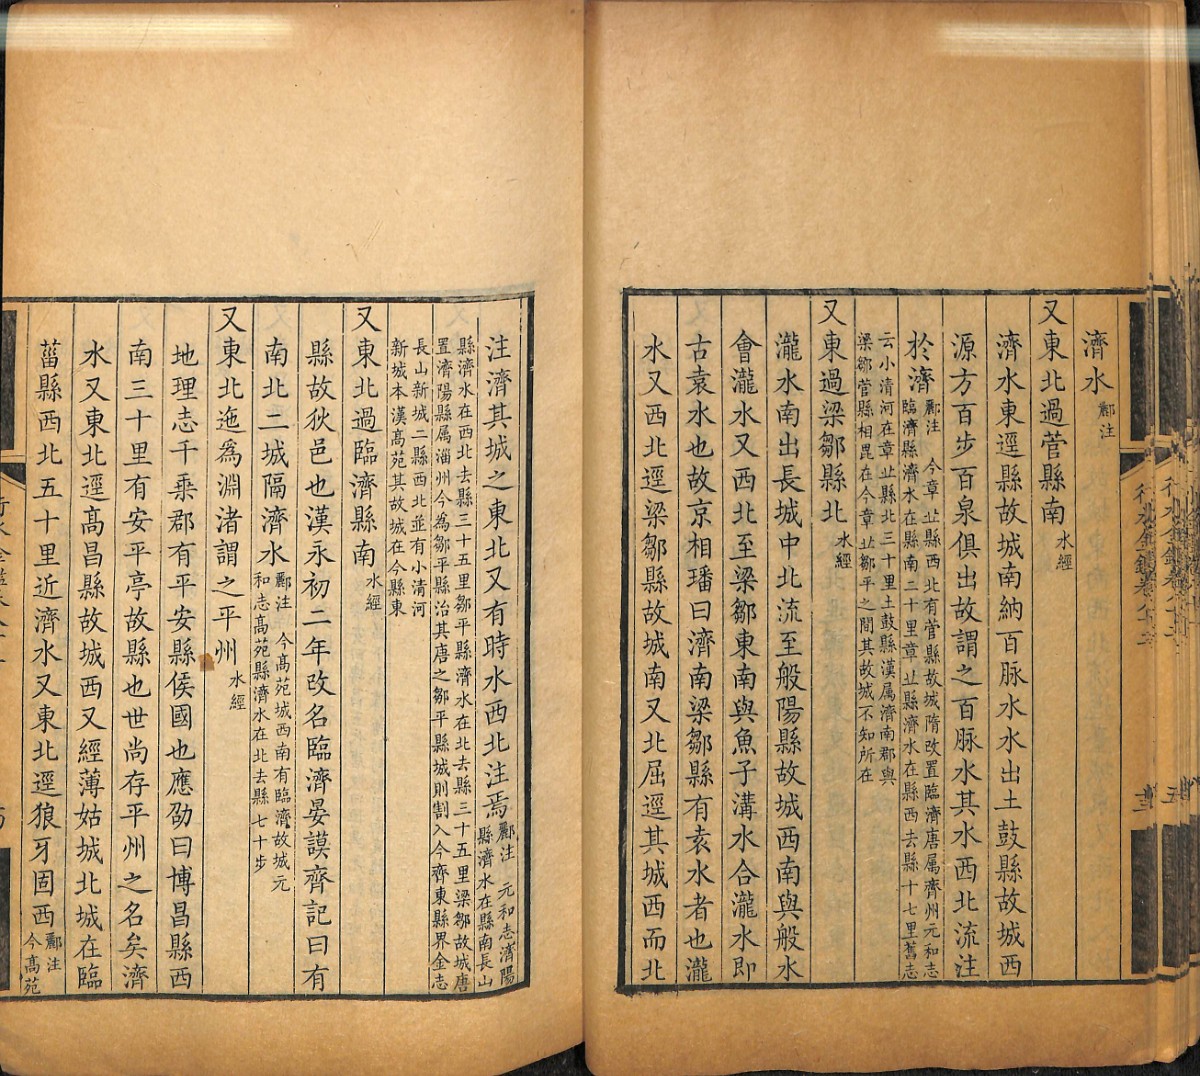 濟水酈注
又東北過菅縣南水經
濟水東逕縣故城南納百脉水水出土鼓縣故城西
源方百步百泉俱出故謂之百脉水其水西北流注
於濟酈注 今章㐀縣西北有菅縣故城隋改置臨濟唐属齊州元和志
臨濟縣濟水在縣南二十里章㐀縣濟水在縣西去縣十七里舊志
云小清河在章㐀縣北三十里土鼓縣漢属濟南郡與
梁鄒菅縣相毘在今章㐀鄒平之間其故城不知所在
又東過梁鄒縣北水經
瀧水南出長城中北流至般陽縣故城西南與般水
會瀧水又西北至梁鄒東南與魚子溝水合瀧水即
古袁水也故京相璠曰濟南梁鄒縣有袁水者也瀧
水又西北逕梁鄒縣故城南又北屈逕其城西而北
注濟其城之東北又有時水西北注焉酈注 元和志濟陽
縣濟水在縣南長山
縣濟水在西北去縣三十五里鄒平縣濟水在北去縣三十五里梁鄒故城唐
置濟陽縣属淄州今為鄒平縣治其唐之鄒平縣城則割入今齊東縣界金志
長山新城二縣西北並有小清河
新城本漢高苑其故城在今縣東
又東北過臨濟縣南水經
縣故狄邑也漢永初二年改名臨濟晏謨齊記曰有
南北二城隔濟水酈注 今高苑城西南有臨濟故城元
和志高苑縣濟水在北去縣七十步
又東北迤為淵渚謂之平州水經
地理志千乗郡有平安縣侯國也應劭曰博昌縣西
南三十里有安平亭故縣也世尚存平州之名矣濟
水又東北逕高昌縣故城西又經薄姑城北城在臨
菑縣西北五十里近濟水又東北逕狼牙固西酈注
今高苑